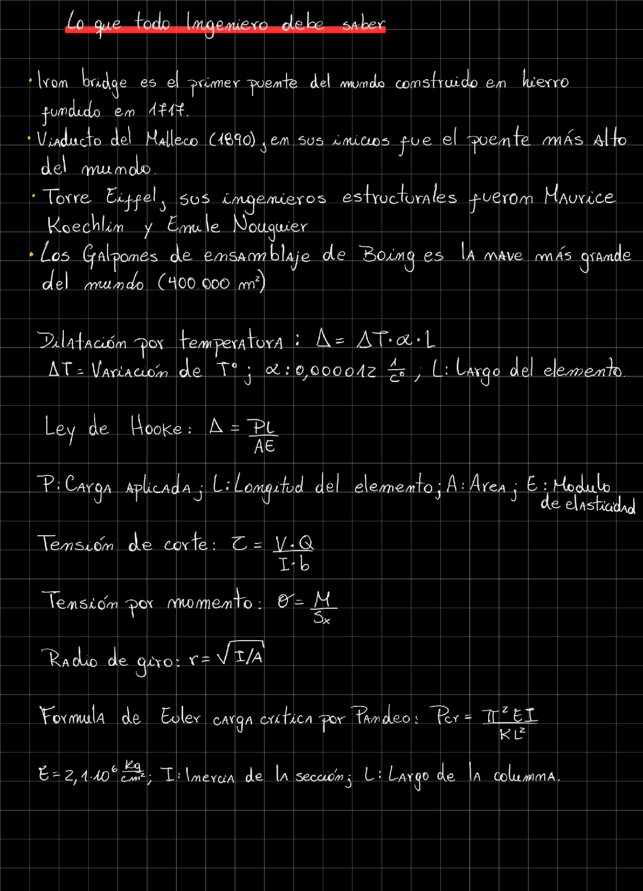 Lo que todo Ingeniero debe saber
• Iron bridge es el primer puente del mundo construido en hierro
fundido en 1717.
• Viaducto del Malleco (1890), en sus inicios fue el puente más alto
del mundo.
• Torre Eiffel, sus ingenieros estructurales fueron Maurice
Koechlin y Emile Nouguier
• Los Galpones de ensamblaje de Boing es la nave más grande
del mundo (400.000 m²)
Dilatación por temperatura: Δ = ΔT·α·L
ΔT = Variación de T°; α: 0,000012 1/C°, L: Largo del elemento.
Ley de Hooke: Δ = PL/AE
P: Carga aplicada; L: Longitud del elemento; A: Area; E: Modulo
de elasticidad
Tensión de corte: τ = V·Q/I·b
Tensión por momento: σ = M/Sx
Radio de giro: r = √I/A
Formula de Euler carga crítica por Pandeo: Pcr = π²EI/KL²
E = 2,1·10⁶ kg/cm²; I: Inercia de la sección; L: Largo de la columna.